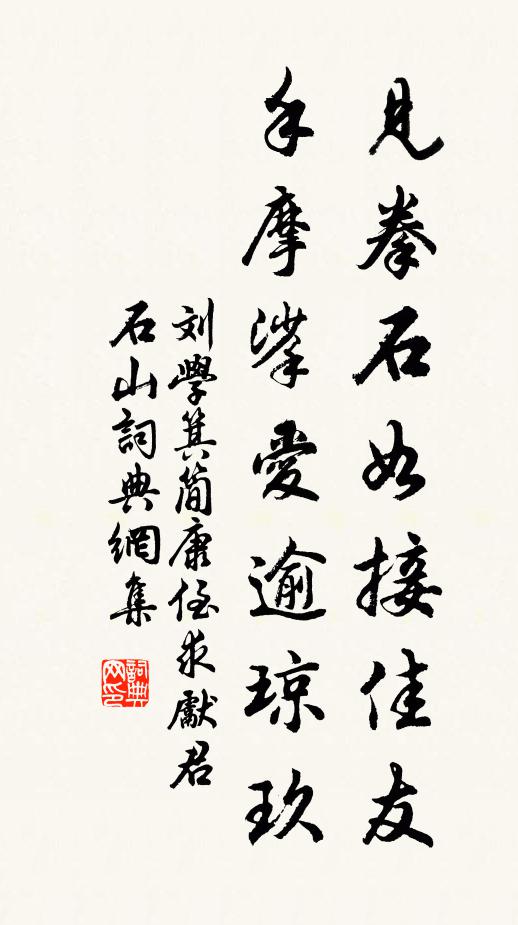 見拳石如接佳友
手摩挲愛逾瓊玖
刘學箕簡康侄求獻君
石山詞典網集
詞典网印